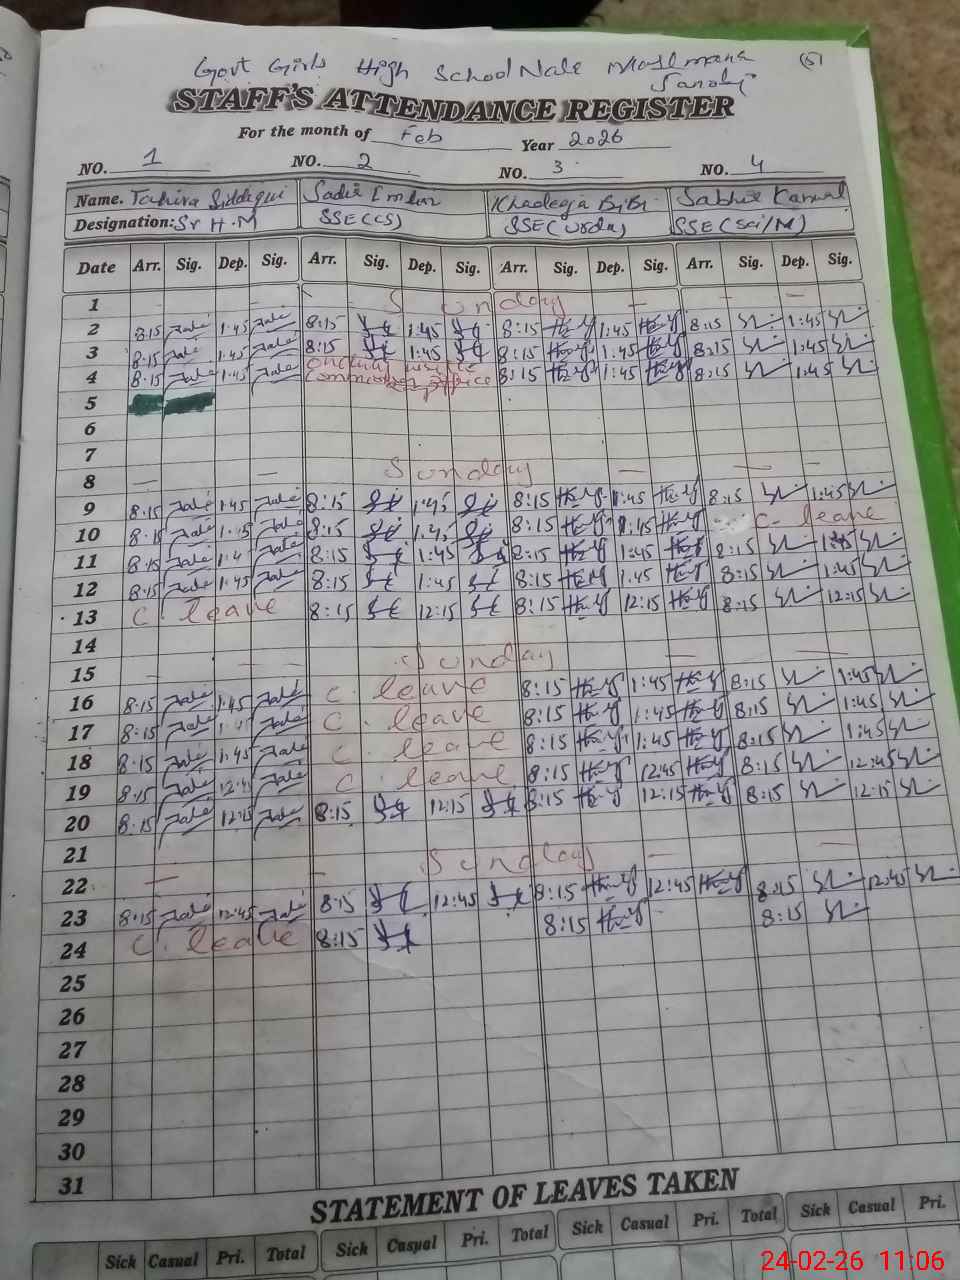 Govt Girls High School Nale (5)
STAFF'S ATTENDANCE REGISTER
For the month of Feb Year 2026
NO. 1 NO. 2 NO. 3 NO. 4
Name. Tahira Siddiqui Sadia Khadeega BiBi
Designation: Sr H.M SSE(CS) SSE(Urdu) SSE(Sci/M)
Date Arr. Sig. Dep. Sig. Arr. Sig. Dep. Sig. Arr. Sig. Dep. Sig. Arr. Sig. Dep. Sig.
1 Sunday
2 8:15 1:45 8:15 1:45 8:15 1:45 8:15 1:45
3 8:15 1:45 8:15 1:45 8:15 1:45 8:15 1:45
4 8:15 1:45 8:15 1:45 8:15 1:45
5
6
7
8 Sunday
9 8:15 1:45 8:15 1:45 8:15 1:45 8:15 1:45
10 8:15 8:15 1:45 8:15 C. leave
11 8:15 8:15 1:45 8:15 1:45 8:15 1:45
12 8:15 1:45 8:15 1:45 8:15 1:45 8:15 1:45
13 C. leave 8:15 12:15 8:15 12:15 8:15 12:15
14
15 Sunday
16 8:15 1:45 C. leave 8:15 1:45 8:15 1:45
17 8:15 C. leave 8:15 1:45 8:15 1:45
18 8:15 1:45 C. leave 8:15 1:45 8:15 1:45
19 8:15 12:45 C. leave 8:15 12:45 8:15 12:45
20 8:15 12:15 8:15 12:15 8:15 12:15 8:15 12:15
21
22 Sunday
23 8:15 12:45 8:15 12:45 8:15 12:45 8:15 12:45
24 C. leave 8:15 8:15 8:15
25
26
27
28
29
30
31
STATEMENT OF LEAVES TAKEN
Sick Casual Pri. Total Sick Casual Pri. Total Sick Casual Pri. Total Sick Casual Pri.
24-02-26 11:06